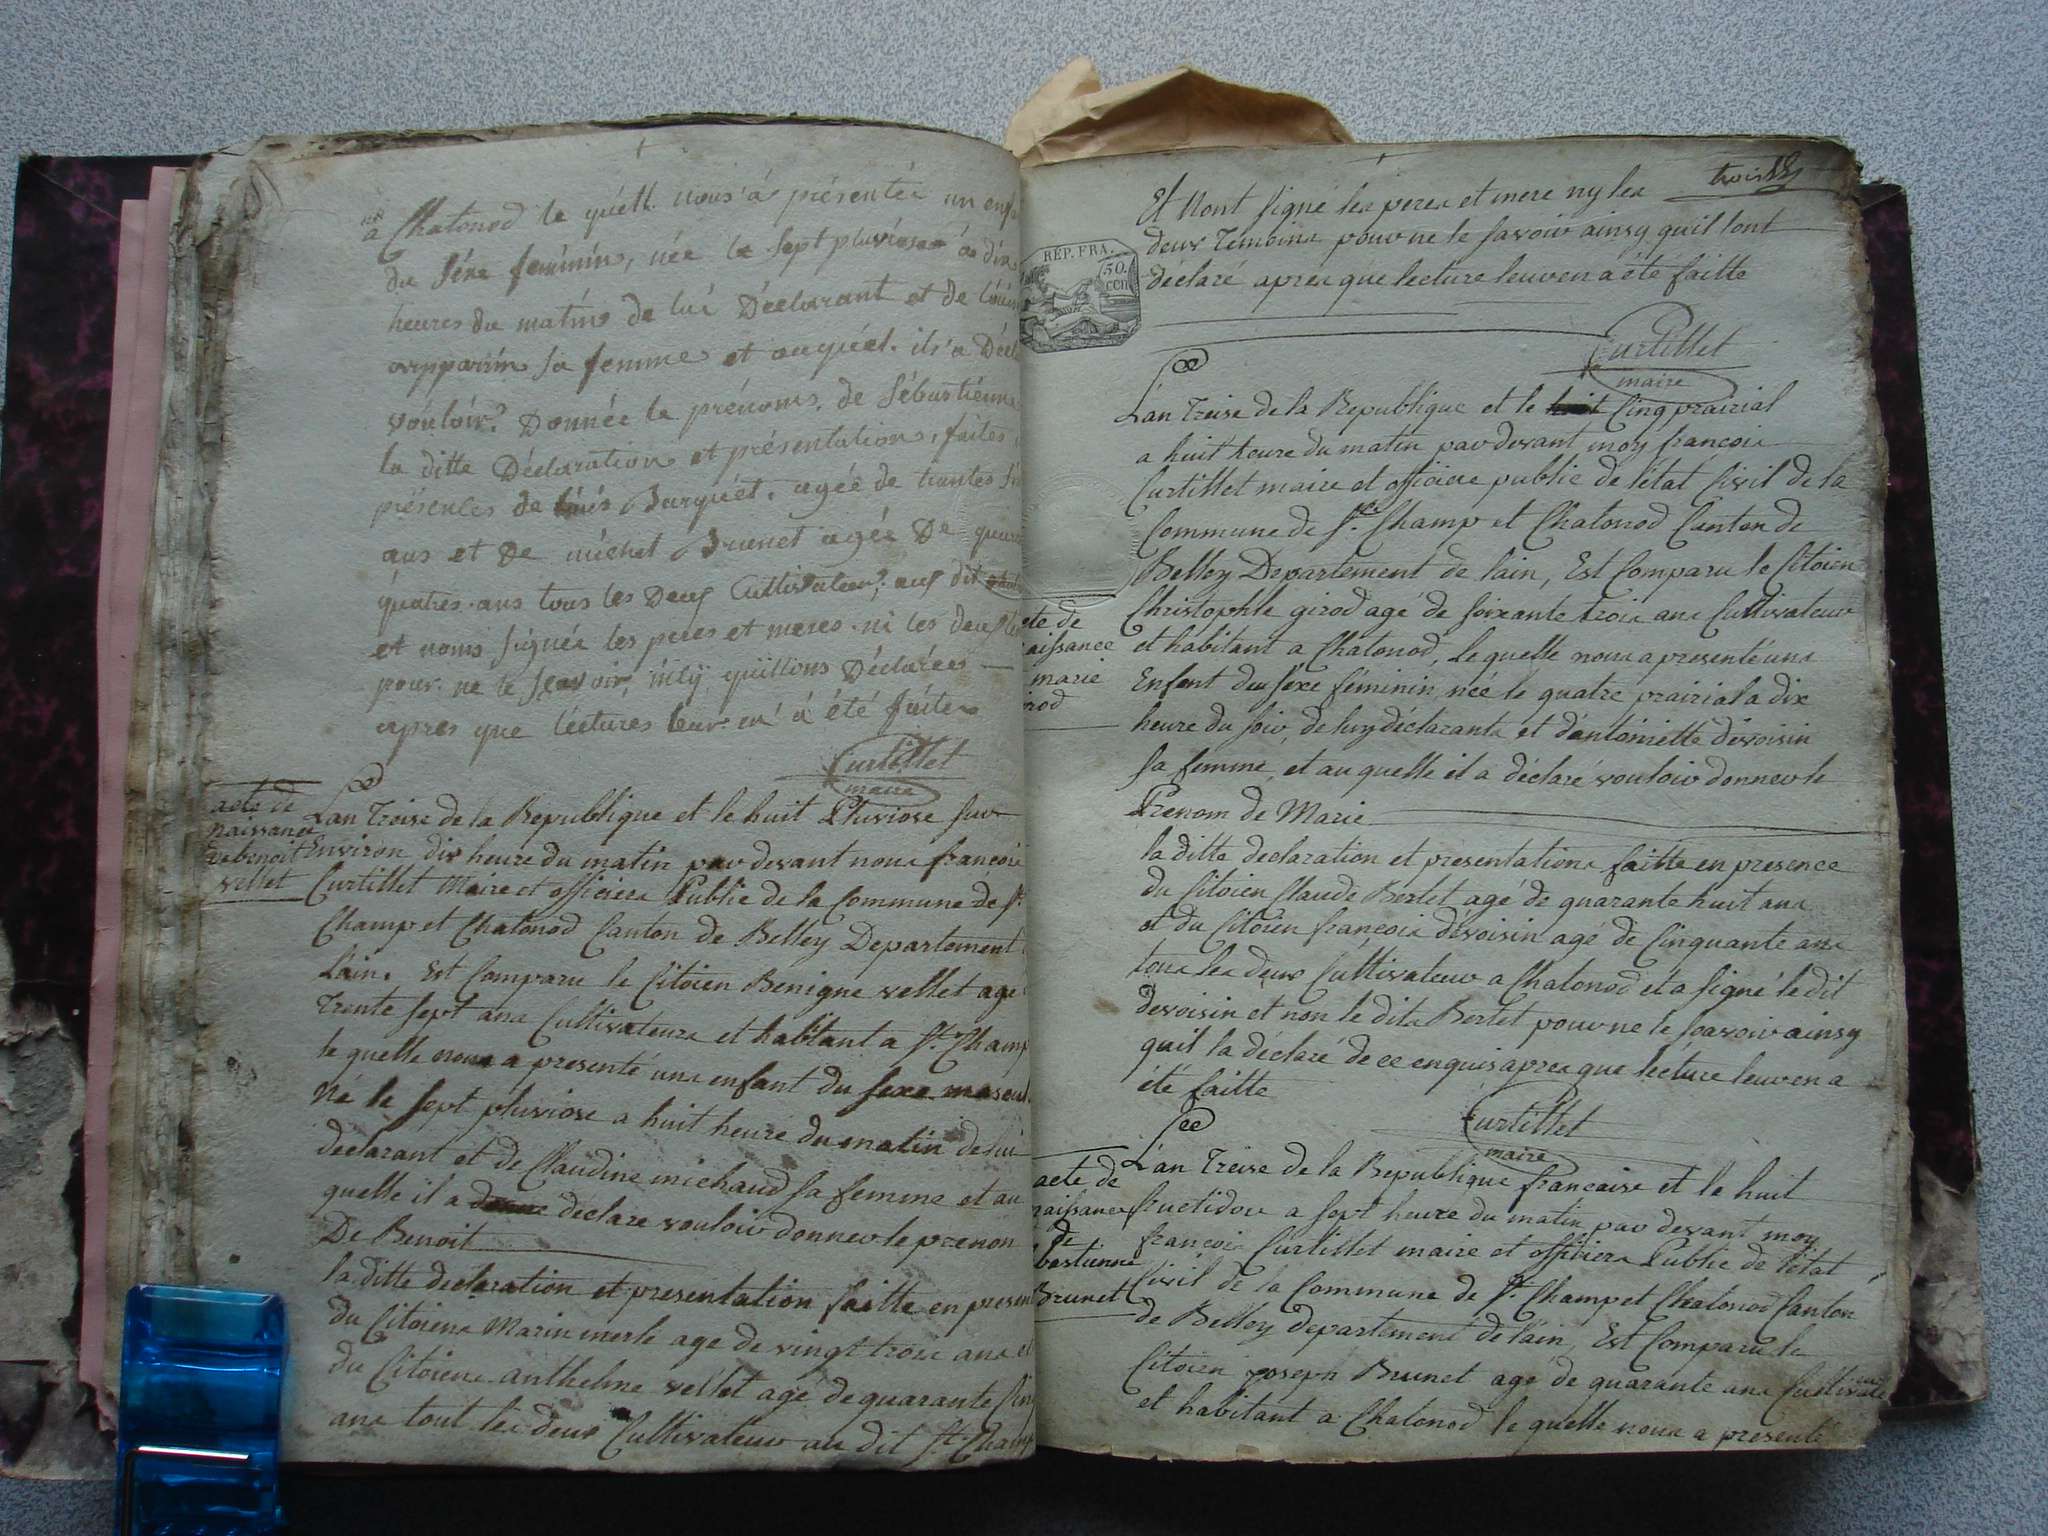 à Chatonod le quéll nous á présentér un enf
du séxe féminin, née le sept pluviose à dix
heures du matin de lui Déclarant et de
sa femme et auquél il a Décl
vouloir Donnér le prénoms de Sébastiénne
la ditte Déclaration et présentation, faites
présences de Burquét agéé de trantes
ans et De michel Brunet agée De
quatres ans tous les Deux Cultivateur, aus dit
et nons signér les peres et meres ni les deux
pour ne le sçavoir, quillons Déclarées
apres que léctures leur en á été faite
Curtillet
maire
acte de
naissance
de benoit
vellet
Lan Treise de la Republique et le huit Pluviose sur
Environ dix heure du matin par devant nous françois
Curtillet Maire et officiers Public de la Commune de St.
Champ et Chatonod Canton de Belley Departement
Lain. Est Comparu le Citoien Benigne vellet age
Trente sept ans Cultivateurs et habitant a St. Champ
le quelle nous a presenté uns enfant du sexe mascul
Né le sept pluviose a huit heure du matin de lui
declarant et de Claudine michaud sa femme et au
quelle il a déclare vouloir donner le prenon
De Benoit
la ditte declaration et presentation faitte en presen
du Citoiens Marin merle age de vingt trois ans et
du Citoiens anthelme vellet agé de quarante Cinq
ans tout les deux Cultivateur au dit St. Champ
trois
Et Nont signé les peres et mere ny les
deux Temoins pour ne le savoir ainsy quil lont
déclaré apres que lecture leur en a été faitte
RÉP. FRA.
50.
cen
Curtillet
maire
ete de
aissance
marie
irod
Lan Treise de la Republique et le huit Cinq prairial
a huit heure du matin par devant moy françois
Curtillet maire et officiere public de létat Civil de la
Commune de St. Champ et Chatonod Canton de
Belley Departement de lain, Est Comparu le Citoien
Christophle girod agé de soixante trois ans Cultivateur
et habitant a Chatonod, le quelle nous a presenté uns
Enfant du séxe féminin, née le quatre prairial a dix
heure du soir, de luy déclarants et d'antoinette dévoisin
sa femme, et au quelle il a déclaré vouloir donner le
Prenom de Marie
la ditte declaration et presentations faitte en presence
du Citoien Claude Bertet agé de quarante huit ans
et du Citoien françois dévoisin agé de Cinquante ans
tous les deux Cultivateur a Chatonod et a signé le dit
devoisin et non le dits Bertet pour ne le sçavoir ainsy
quil la déclaré de ce enquis apres que lecture leur en a
été faitte
Curtillet
maire
acte de
naissance
de
bastienne
Brunet
L'an Treise de la Republique francaise et le huit
fructidor a sept heure du matin par devant moy
françois Curtillet maire et officiers Public de l'état
Civil de la Commune de St. Champ et Chatonod Canton
de Belley departement de lain, Est Comparu le
Citoien joseph Brunet agé de quarante ans Cultivateur
et habitant a Chatonod le quelle nous a presenté